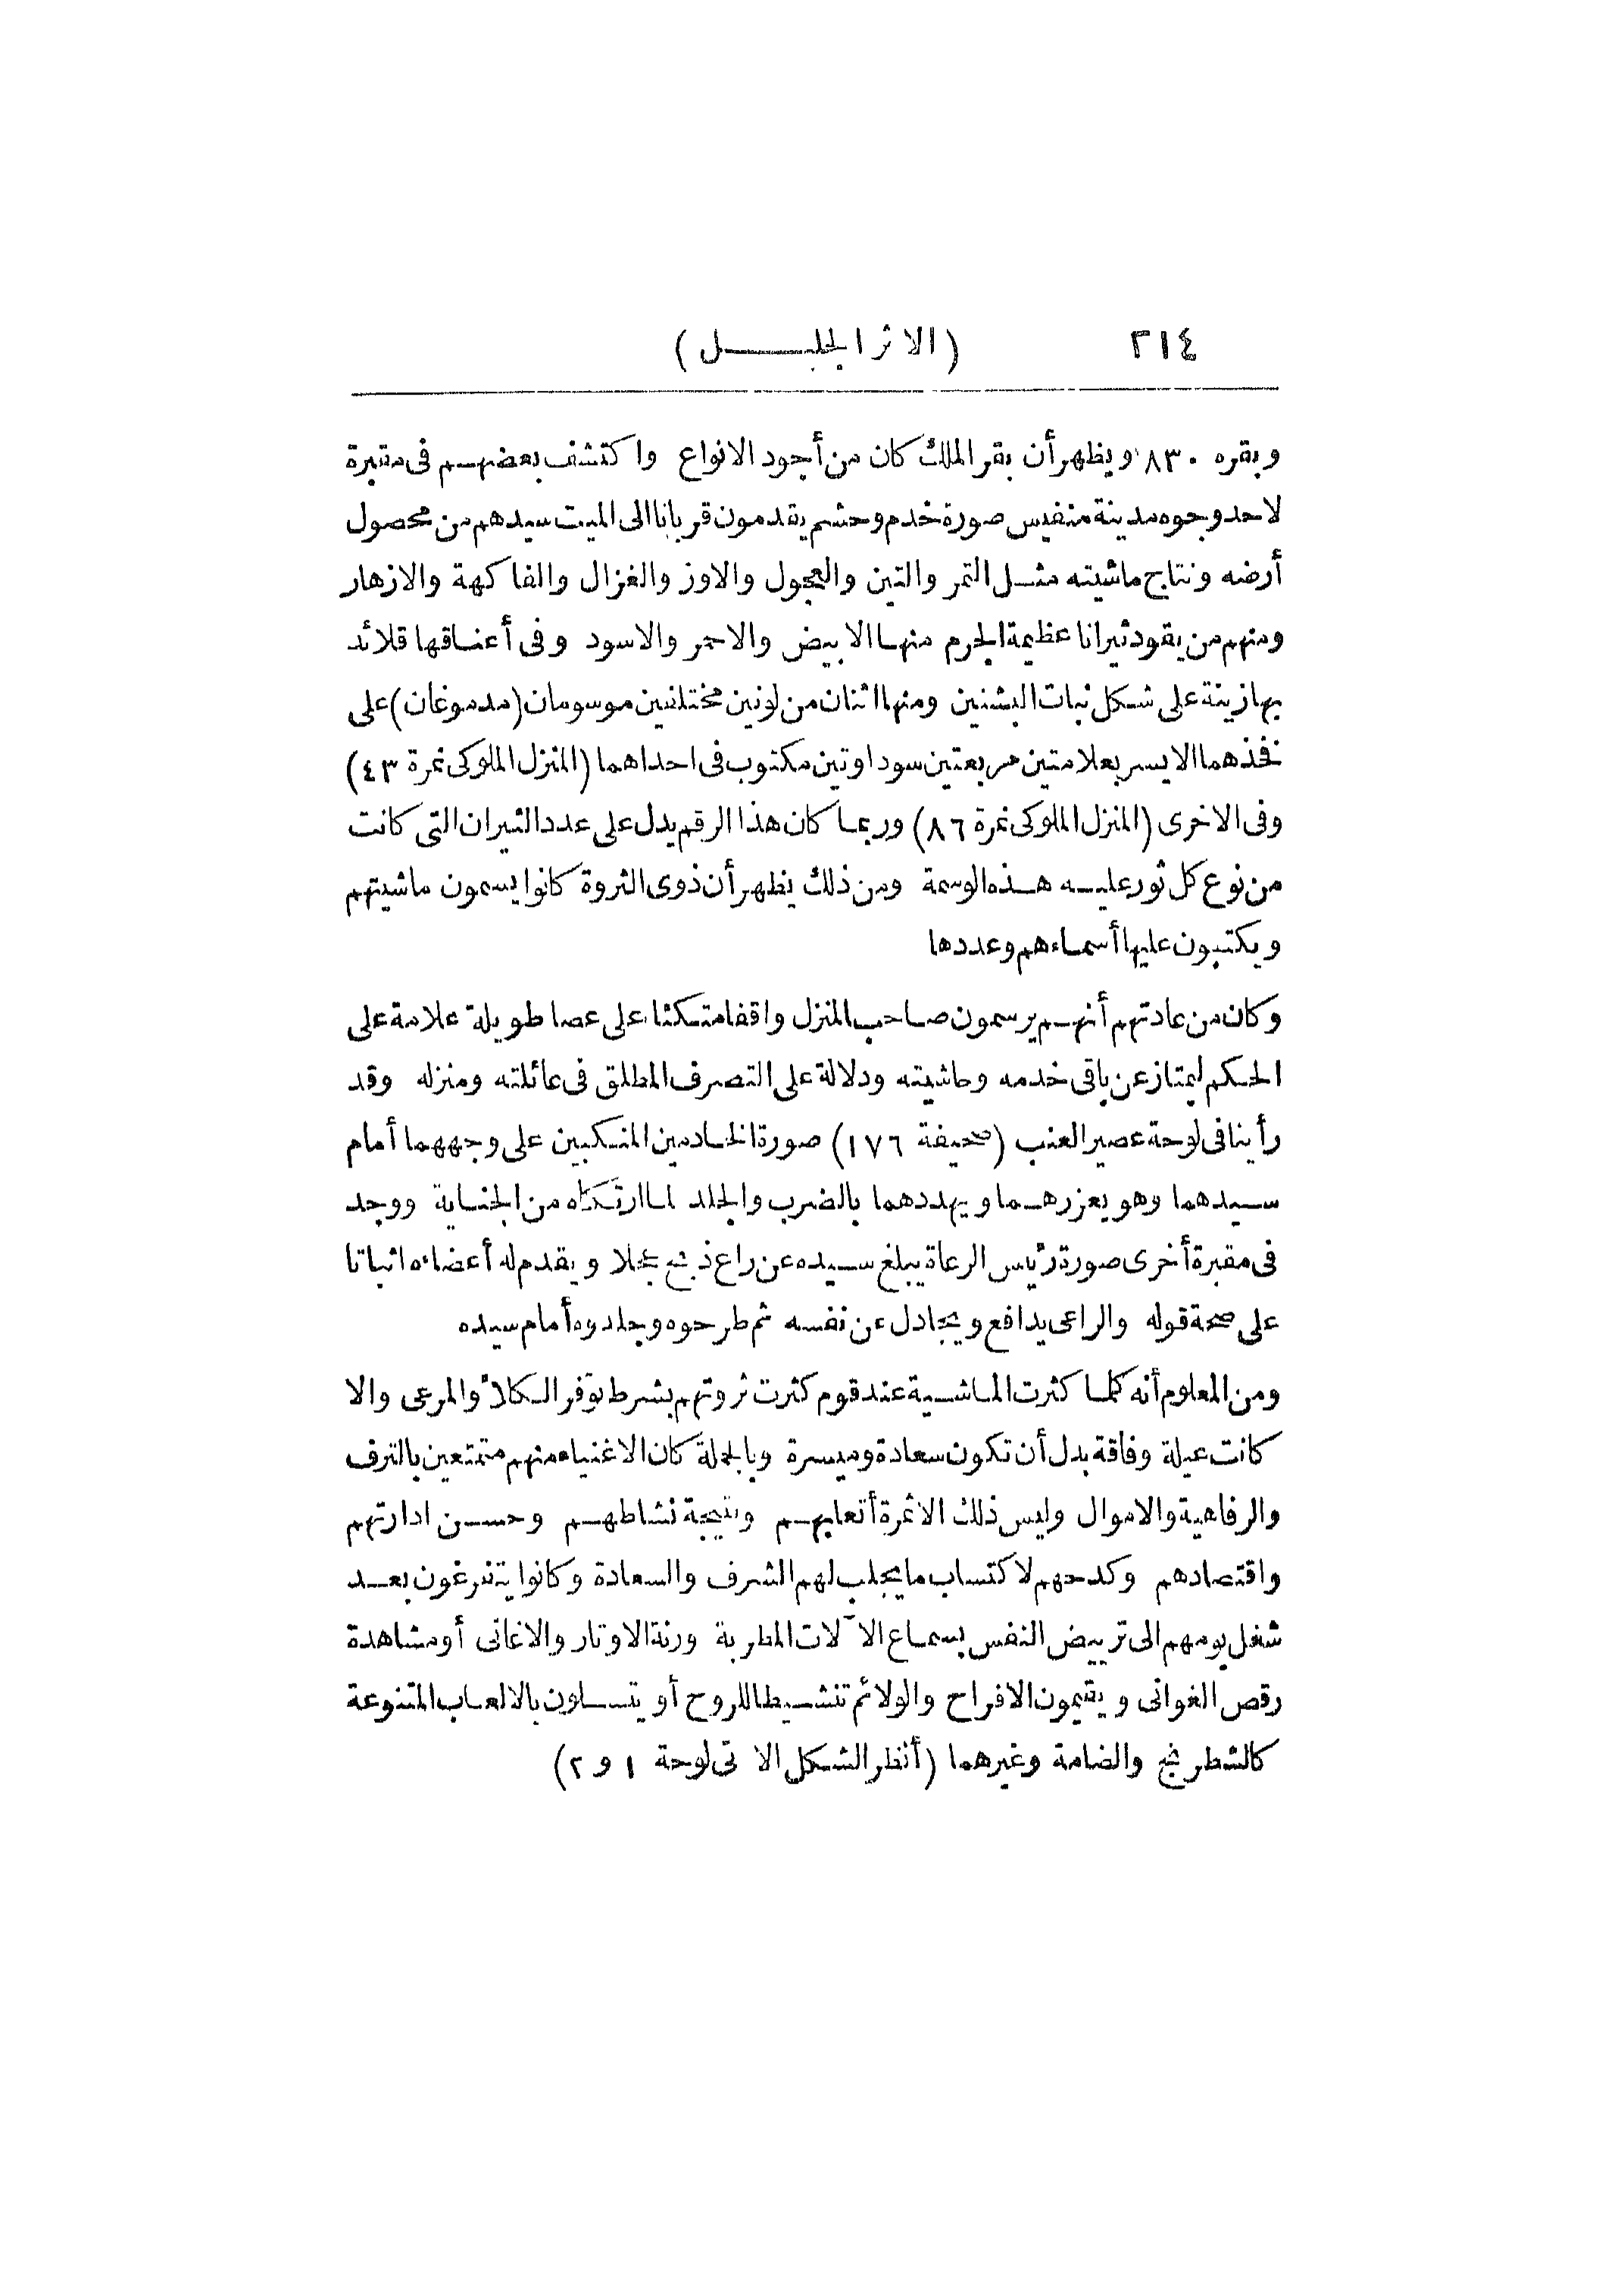 ٢١٤ (الاثر الجليل)
وبقره ٨٣٠ ويظهر أن بقر الملك كان من أجود الانواع واكتشف بعضهم فى مقبرة
لاحد وجوه مدينة منفيس صورة خدم وحشم يقدمون قربانا الى الميت سيدهم من محصول
أرضه ونتاج ماشيته مثل التمر والتين والعجول والاوز والغزال والفاكهة والازهار
ومنهم من يقود ثيرانا عظيمة الجرم منها الابيض والاحمر والاسود وفى أعناقها قلائد
بها زينة على شكل نبات البشنين ومنها اثنان من لونين مختلفين موسومان (مدموغان) على
فخذهما الايسر بعلامتين مربعتين سوداوتين مكتوب فى احداهما (المنزل الملوكى نمرة ٤٣)
وفى الاخرى (المنزل الملوكى نمرة ٨٦) وربما كان هذا الرقم يدل على عدد الثيران التى كانت
من نوع كل ثور عليه هذه الوسمة ومن ذلك يظهر أن ذوى الثروة كانوا يسمون ماشيتهم
ويكتبون عليها أسماءهم وعددها
وكان من عادتهم أنهم يرسمون صاحب المنزل واقفا متكئا على عصا طويلة علامة على
الحكم ليمتاز عن باقى خدمه وحاشيته ودلالة على التصرف المطلق فى عائلته ومنزله وقد
رأينا فى لوحة عصير العنب (صحيفة ١٧٦) صورة الخادمين المنكبين على وجههما أمام
سيدهما وهو يعزرهما ويهددهما بالضرب والجلد لما ارتكباه من الجناية ووجد
فى مقبرة أخرى صورة رئيس الرعاة يبلغ سيده عن راع ذبح عجلا ويقدم له أعضاءه اثباتا
على صحة قوله والراعى يدافع ويجادل عن نفسه ثم طرحوه وجلدوه أمام سيده
ومن المعلوم أنه كلما كثرت الماشية عند قوم كثرت ثروتهم بشرط توفر الكلأ والمرعى والا
كانت عيلة وفاقة بدل أن تكون سعادة وميسرة وبالجملة كان الاغنياء منهم متمتعين بالترف
والرفاهية والاموال وليس ذلك الا ثمرة أتعابهم ونتيجة نشاطهم وحسن ادارتهم
واقتصادهم وكدحهم لاكتساب ما يجلب لهم الشرف والسعادة وكانوا يتفرغون بعد
شغل يومهم الى ترييض النفس بسماع الآلات المطربة ورنة الاوتار والاغانى أو مشاهدة
رقص الغوانى ويقيمون الافراح والولائم تنشيطا للروح أو يتسلون بالالعاب المتنوعة
كالشطرنج والضامة وغيرهما (أنظر الشكل الآتى لوحة ١ و ٢)